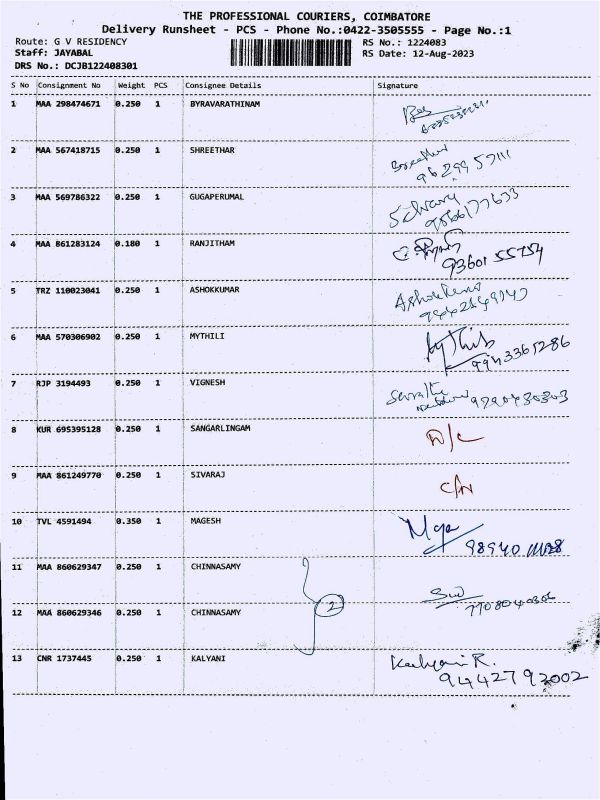 THE PROFESSIONAL COURIERS, COIMBATORE
Delivery Runsheet - PCS - Phone No.:0422-3505555 - Page No.:1
Route: G V RESIDENCY RS No.: 1224083
Staff: JAYABAL RS Date: 12-Aug-2023
DRS No.: DCJB122408301
S No Consignment No Weight PCS Consignee Details Signature
1 MAA 298474671 0.250 1 BYRAVARATHINAM
2 MAA 567418715 0.250 1 SHREETHAR
3 MAA 569786322 0.250 1 GUGAPERUMAL
4 MAA 861283124 0.180 1 RANJITHAM
9360155754
5 TRZ 110023041 0.250 1 ASHOKKUMAR
6 MAA 570306902 0.250 1 MYTHILI
7 RJP 3194493 0.250 1 VIGNESH
8 KUR 695395128 0.250 1 SANGARLINGAM D/L
9 MAA 861249770 0.250 1 SIVARAJ C/N
10 TVL 4591494 0.350 1 MAGESH
11 MAA 860629347 0.250 1 CHINNASAMY
2
12 MAA 860629346 0.250 1 CHINNASAMY
13 CNR 1737445 0.250 1 KALYANI Kalyani R.
9442792002